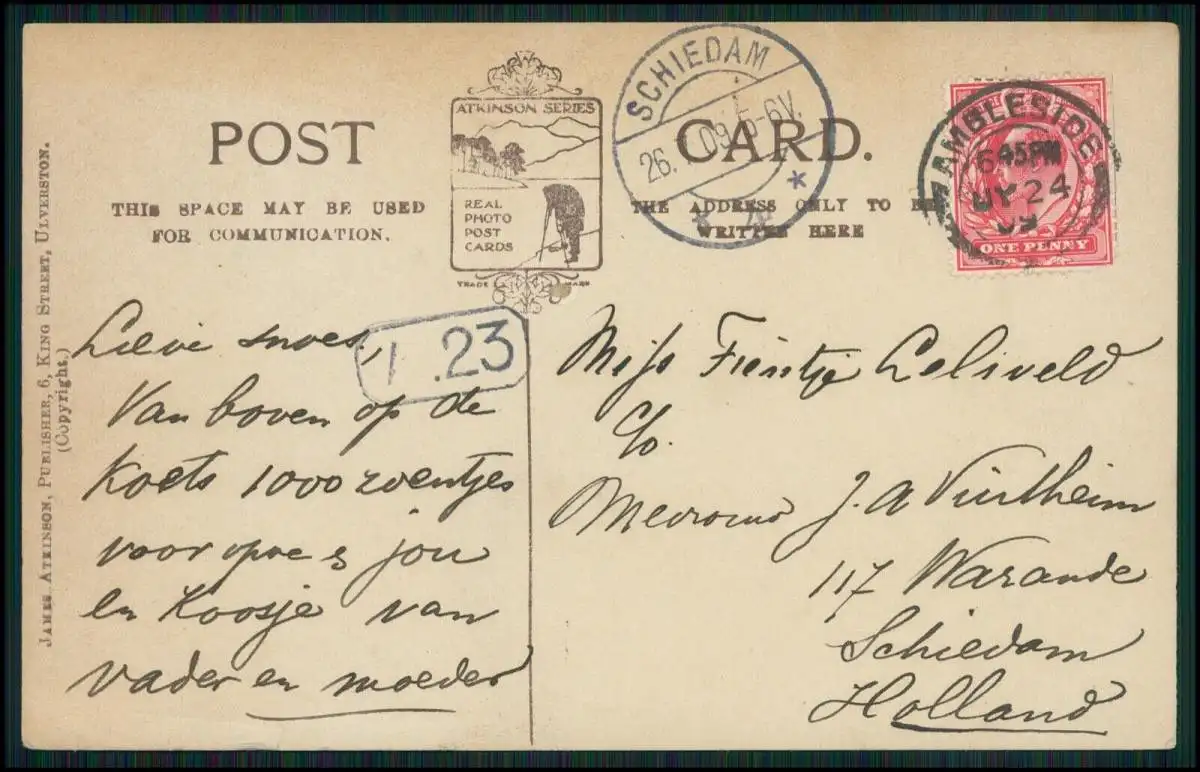 POST CARD.
THIS SPACE MAY BE USED
FOR COMMUNICATION.
THE ADDRESS ONLY TO BE
WRITTEN HERE
ATKINSON SERIES
REAL
PHOTO
POST
CARDS
TRADE MARK
SCHIEDAM
26. 09 5-6V.
AMBLESIDE
6 45PM
JY 24
09
ONE PENNY
JAMES ATKINSON, PUBLISHER, 6, KING STREET, ULVERSTON.
(Copyright.)
1 .23
Lieve snoes,
Van boven op de
Koets 1000 zoentjes
voor opoe jou
en Koosje van
vader en moeder
Miss Fientje Leliveld
c/o.
Mevrouw J. A
117 Warande
Schiedam
Holland